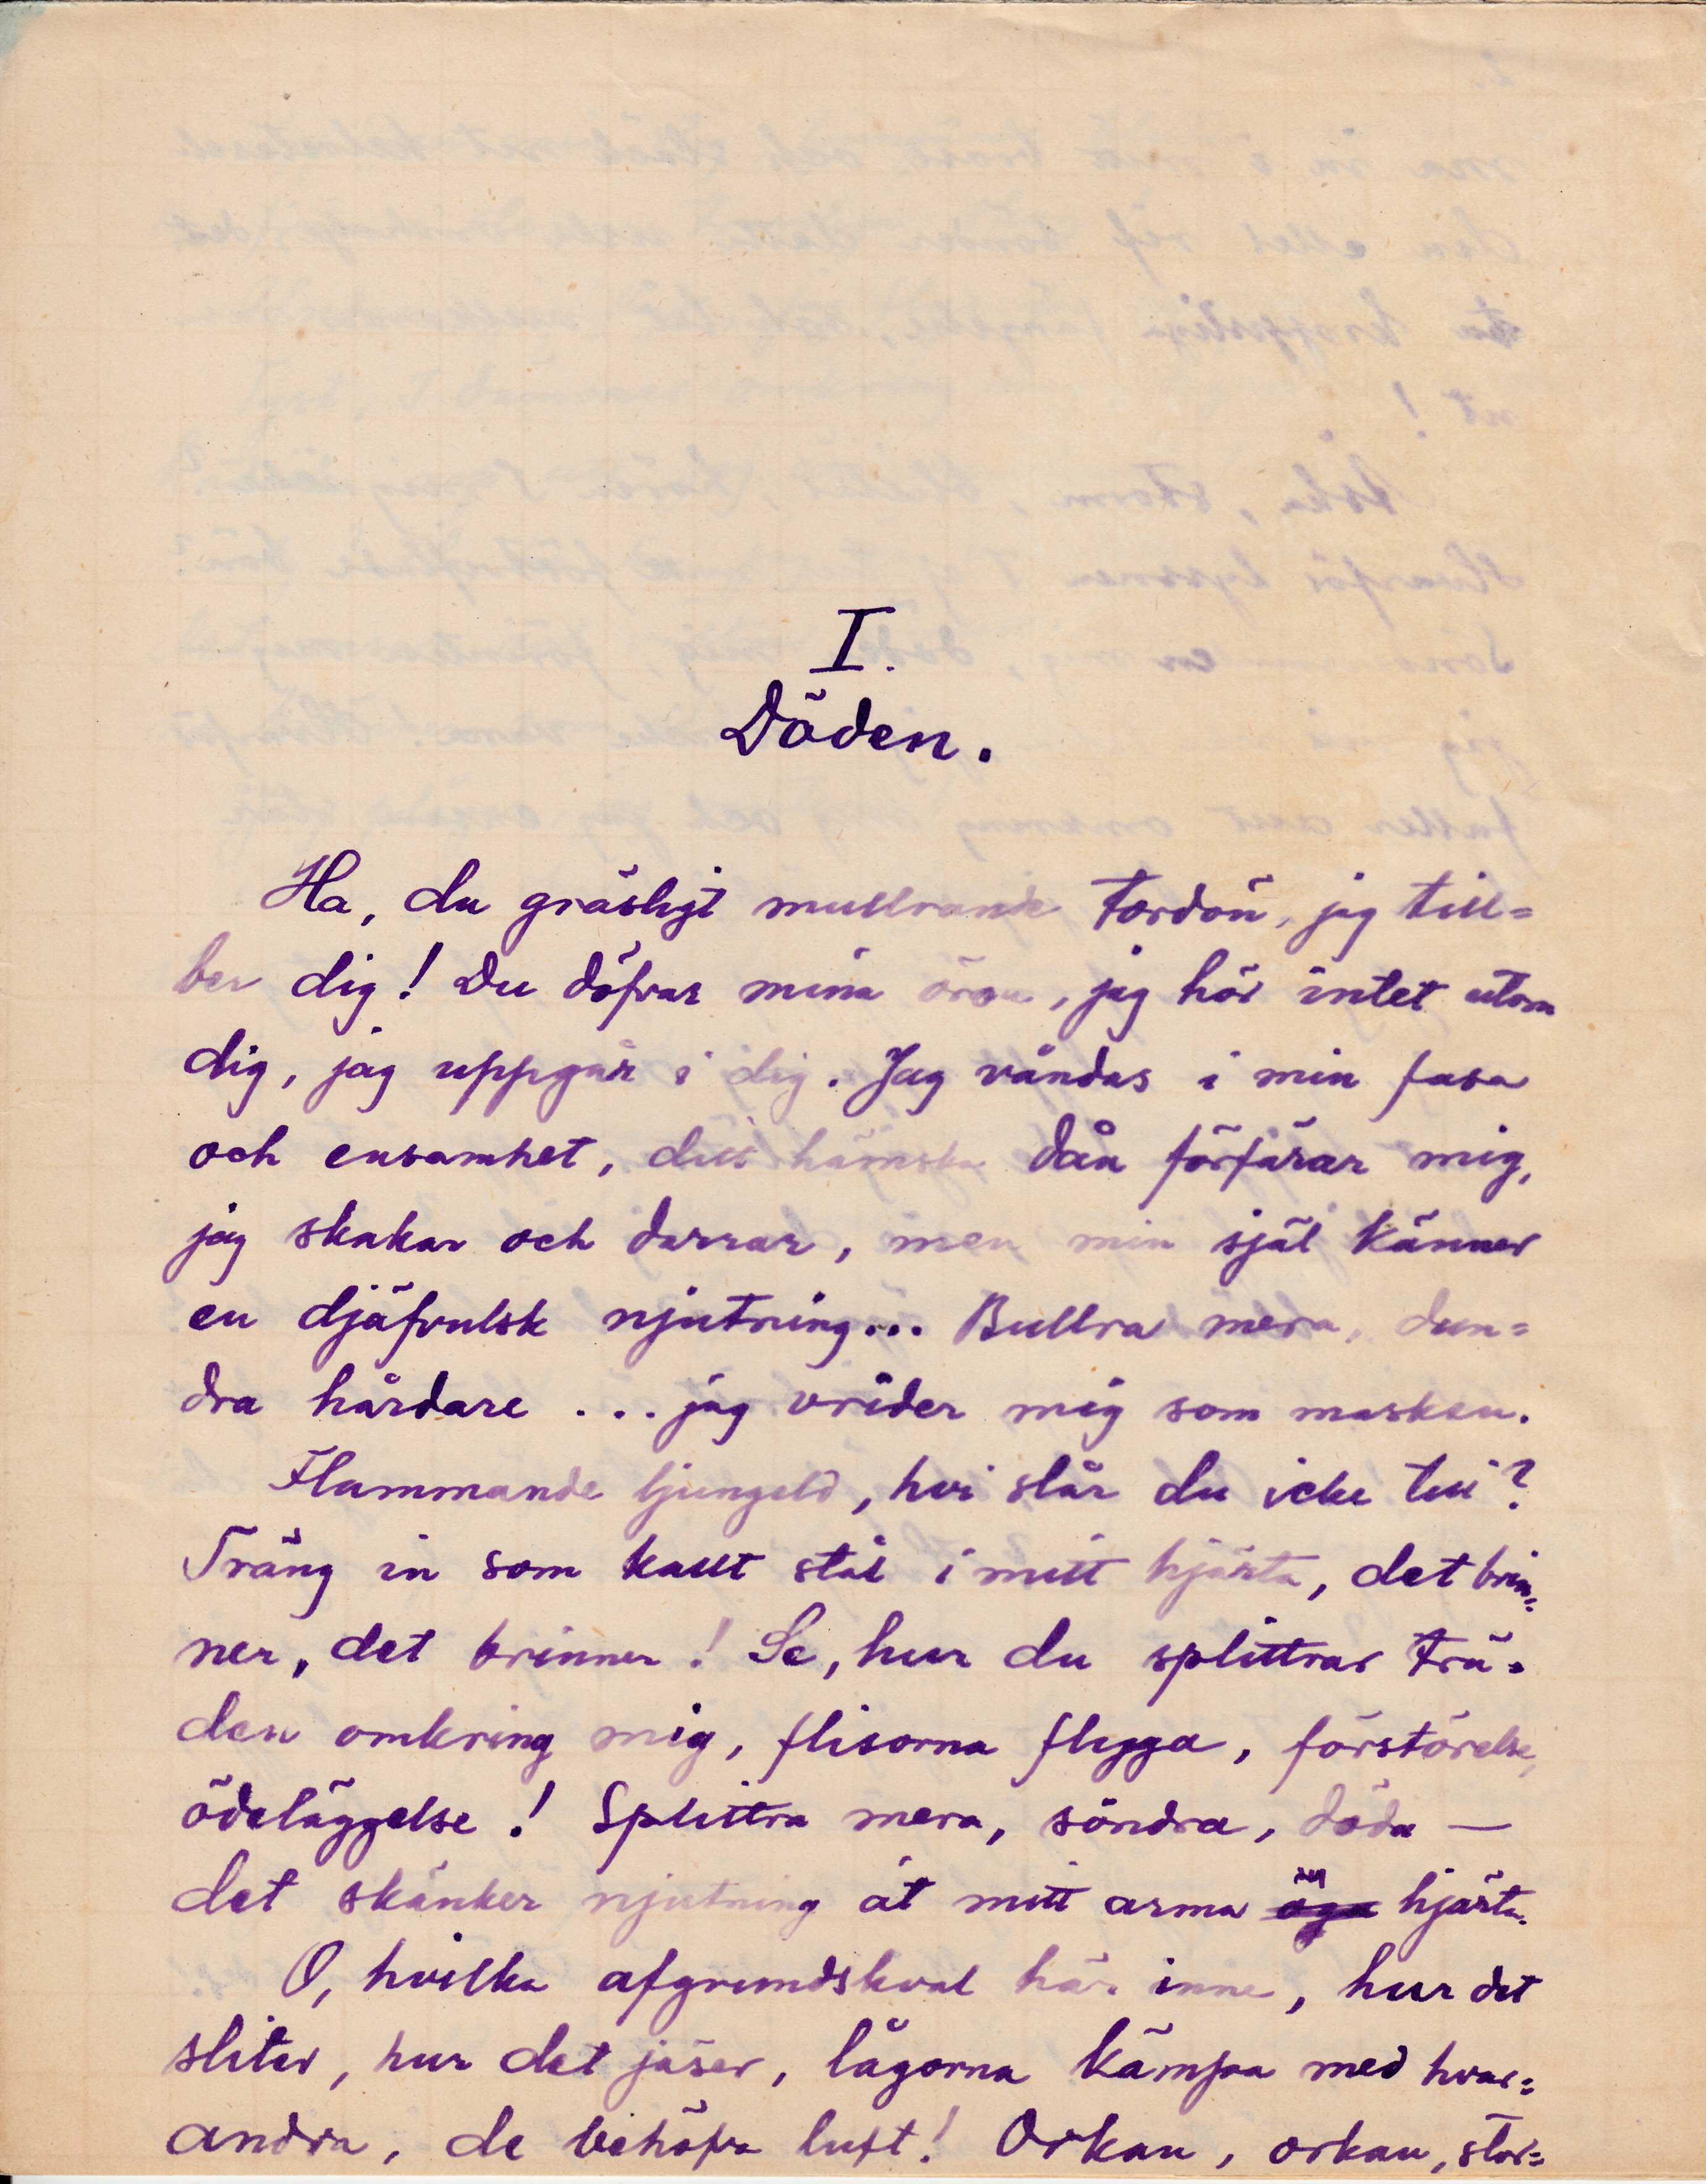 I.
Döden.
Ha, du gräsligt mullrande tordön, jag till=
ber dig! Du döfvar mina öron, jag hör intet utom
dig, jag uppgår i dig. Jag våndas i min fasa
och ensamhet, ditt hämska dån förfärar mig,
jag skakar och darrar, men min själ känner
en djäfvulsk njutning... Bullra mera, dun=
dra hårdare ... jag vrider mig som masken.
Flammande ljungeld, hvi slår du icke till?
Träng in som kallt stål i mitt hjärta, det brin=
ner, det brinner! Se, hur du splittrar trä=
den omkring mig, flisorna flyga, förstörelse,
ödeläggelse! Splittra mera, söndra, döda —
det skänker njutning åt mitt arma öga hjärta.
O, hvilka afgrundskval här inne, hur det
sliter, hur det jäser, lågorna kämpa med hvar=
andra, de behöfva luft! Orkan, orkan, stor=